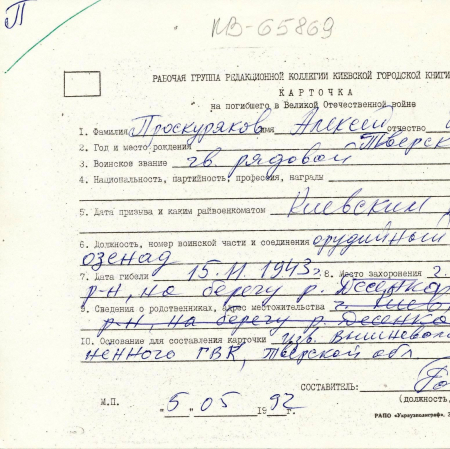 П
КВ-65869
РАБОЧАЯ ГРУППА РЕДАКЦИОННОЙ КОЛЛЕГИИ КИЕВСКОЙ ГОРОДСКОЙ КНИГИ
КАРТОЧКА
на погибшего в Великой Отечественной войне
1. Фамилия Проскуряков имя Алексей отчество
2. Год и место рождения Тверск
3. Воинское звание гв. рядовой
4. Национальность, партийность, профессия, награды
5. Дата призыва и каким райвоенкоматом Киевским
6. Должность, номер воинской части и соединения орудийный
озенад
7. Дата гибели 15.11.1943г. 8. Место захоронения г.
р-н, на берегу р. Десенка
9. Сведения о родственниках, адрес местожительства г. Киев,
р-н, на берегу р. Десенка
10. Основание для составления карточки изв. Вышневол
ненного ГВК, Тверской обл
СОСТАВИТЕЛЬ:
(должность,
М.П. "5" 05 1992г.
РАПО «Укрвузполиграф».